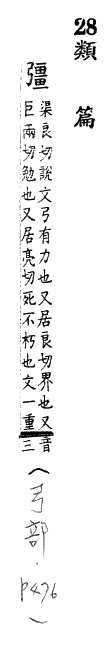 28類 篇
彊 渠良切說文弓有力也又居良切界也又音
巨兩切勉也又居亮切死不朽也文一重三
(弓部.
p476)